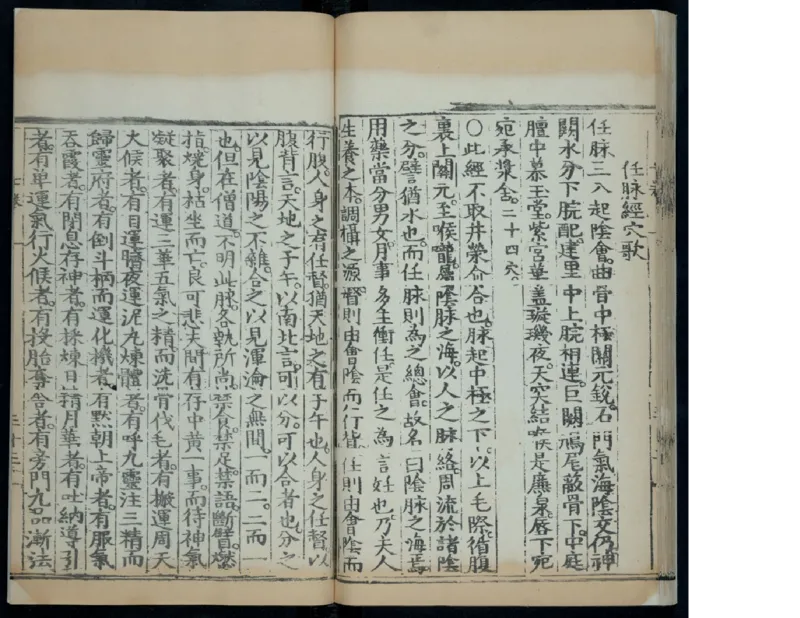 任脉經穴歌
任脉三八起陰會。曲骨中極關元銳。石門氣海陰交仍。神
闕水分下脘配。建里中上脘相連。巨闕鳩尾蔽骨下。中庭
膻中慕玉堂。紫宮華蓋璇璣夜。天突結喉是廉泉。唇下宛
宛承漿舍。二十四穴。
○此經不取井榮俞合也。脉起中極之下。以上毛際。循腹
裏上關元。至喉嚨。屬陰脉之海。以人之脉絡周流於諸陰
之分。譬猶水也。而任脉則為之總會。故名曰陰脉之海焉。
用藥當分男女。月事多主衝任。是任之為言妊也。乃夫人
生養之本。調攝之源。督則由會陰而行背。任則由會陰而
行腹。人身之有任督。猶天地之有子午也。人身之任督。以
腹背言。天地之子午。以南北言。可以分。可以合者也。分之
以見陰陽之不離。合之以見渾淪之無間。一而二。二而一
也。但在僧道。不明此脉。各執所尚。禁食禁足。禁語斷臂。燃
指燒身。枯坐而亡。良可悲夫。間有存中黃一事。而待神氣
凝聚者。有運三華五氣之精。而洗骨伐毛者。有搬運周天
火候者。有日運臍。夜運泥丸煉體者。有呼九靈注三精而
歸靈府者。有倒斗柄而運化機者。有默朝上帝者。有服氣
吞霞者。有閉息存神者。有採煉日精月華者。有吐納導引
者。有单運氣行火候者。有投胎奪舍者。有旁門九品漸法